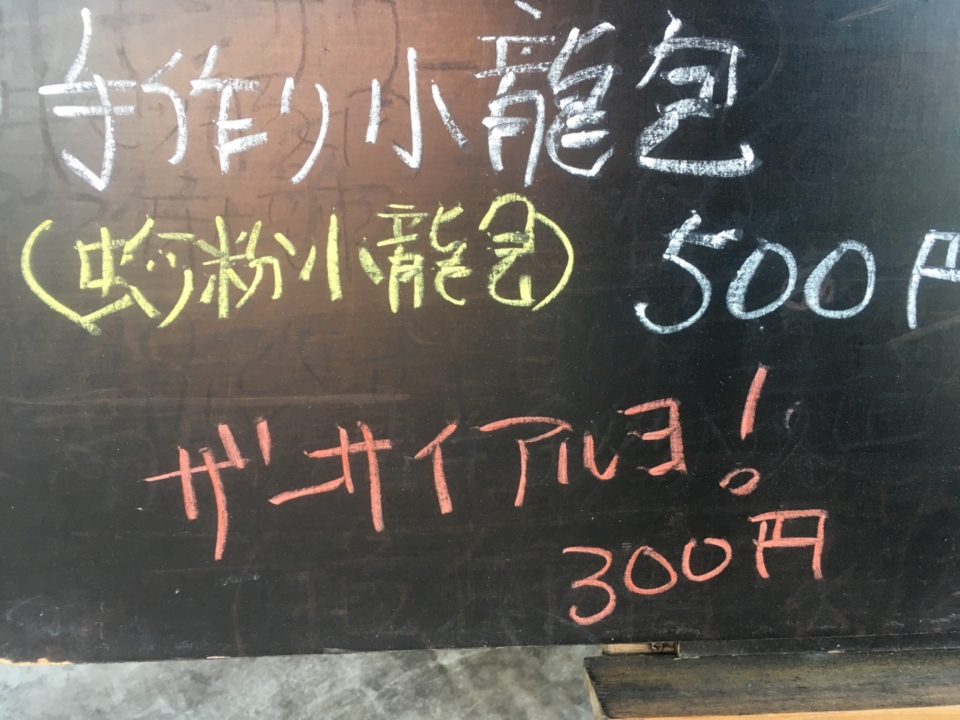 手作り小龍包
(蚧粉小龍包) 500円
ザーサイアルヨ!
300円